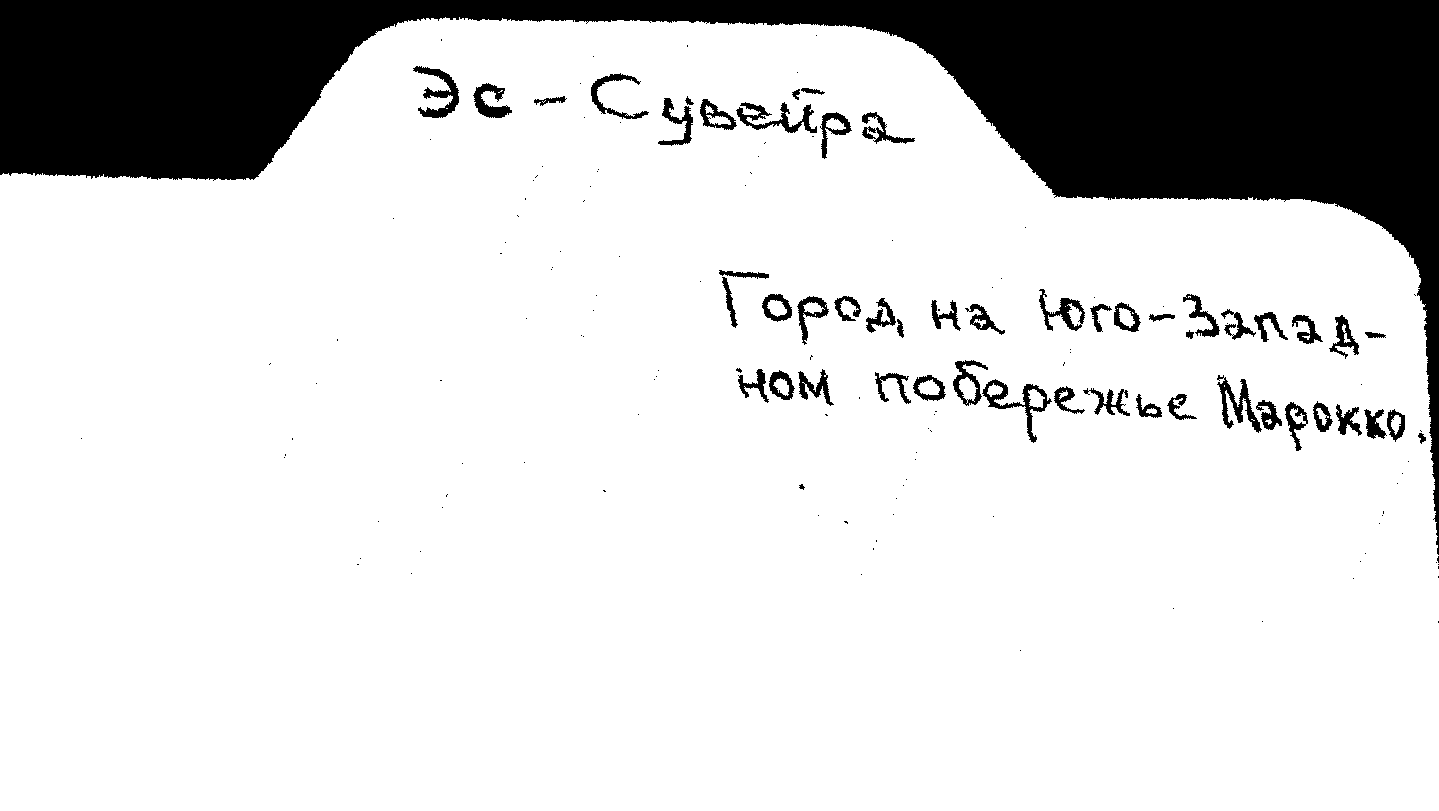 Эс - Сувейра
Город на Юго-Запад-
ном побережье Марокко.